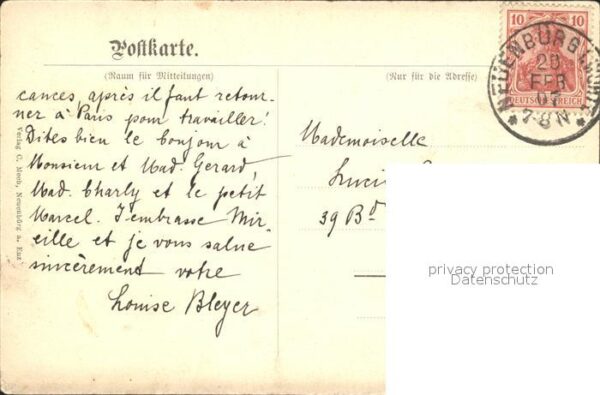 Postkarte.
(Raum für Mitteilungen)
(Nur für die Adresse)
10 10
DEUTSCHES REICH
NEUENBÜRG
20
FEB
07
7-8 N
cances après il faut retour-
ner à Paris pour travailler!
Dites bien le bonjour à
Monsieur et Mad. Gerard,
Mad. Charly et le petit
Marcel. J'embrasse Mir
eille et je vous salue
sincèrement votre
Louise Bleyer
Mademoiselle
39 Bd
Verlag C. Meeh, Neuenbürg a. Enz
privacy protection
Datenschutz